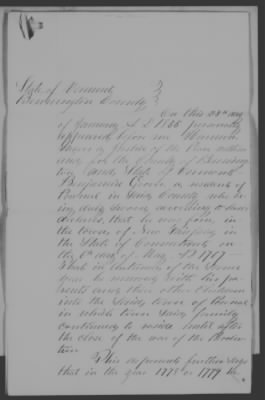 State of Vermont
Bennington County
On this 28th day
of January A D 1835 personally
appeared before me
a Justice of the Peace within
and for the County of Benning
ton and State of Vermont
Benjamin Grover a resident of
Pownal in said County who be
ing duly sworn according to law
declares, that he was born in
the town of New Fairfield in
the State of Connecticut on
the 6th day of May A D 1757
That in the
year he removed with his pa
rents and then other children
into the said town of Pownal
in which town said family
continued to reside until after
the close of the war of the Revolu
tion
This deponent further says
that in the year 1778 or 1779 he